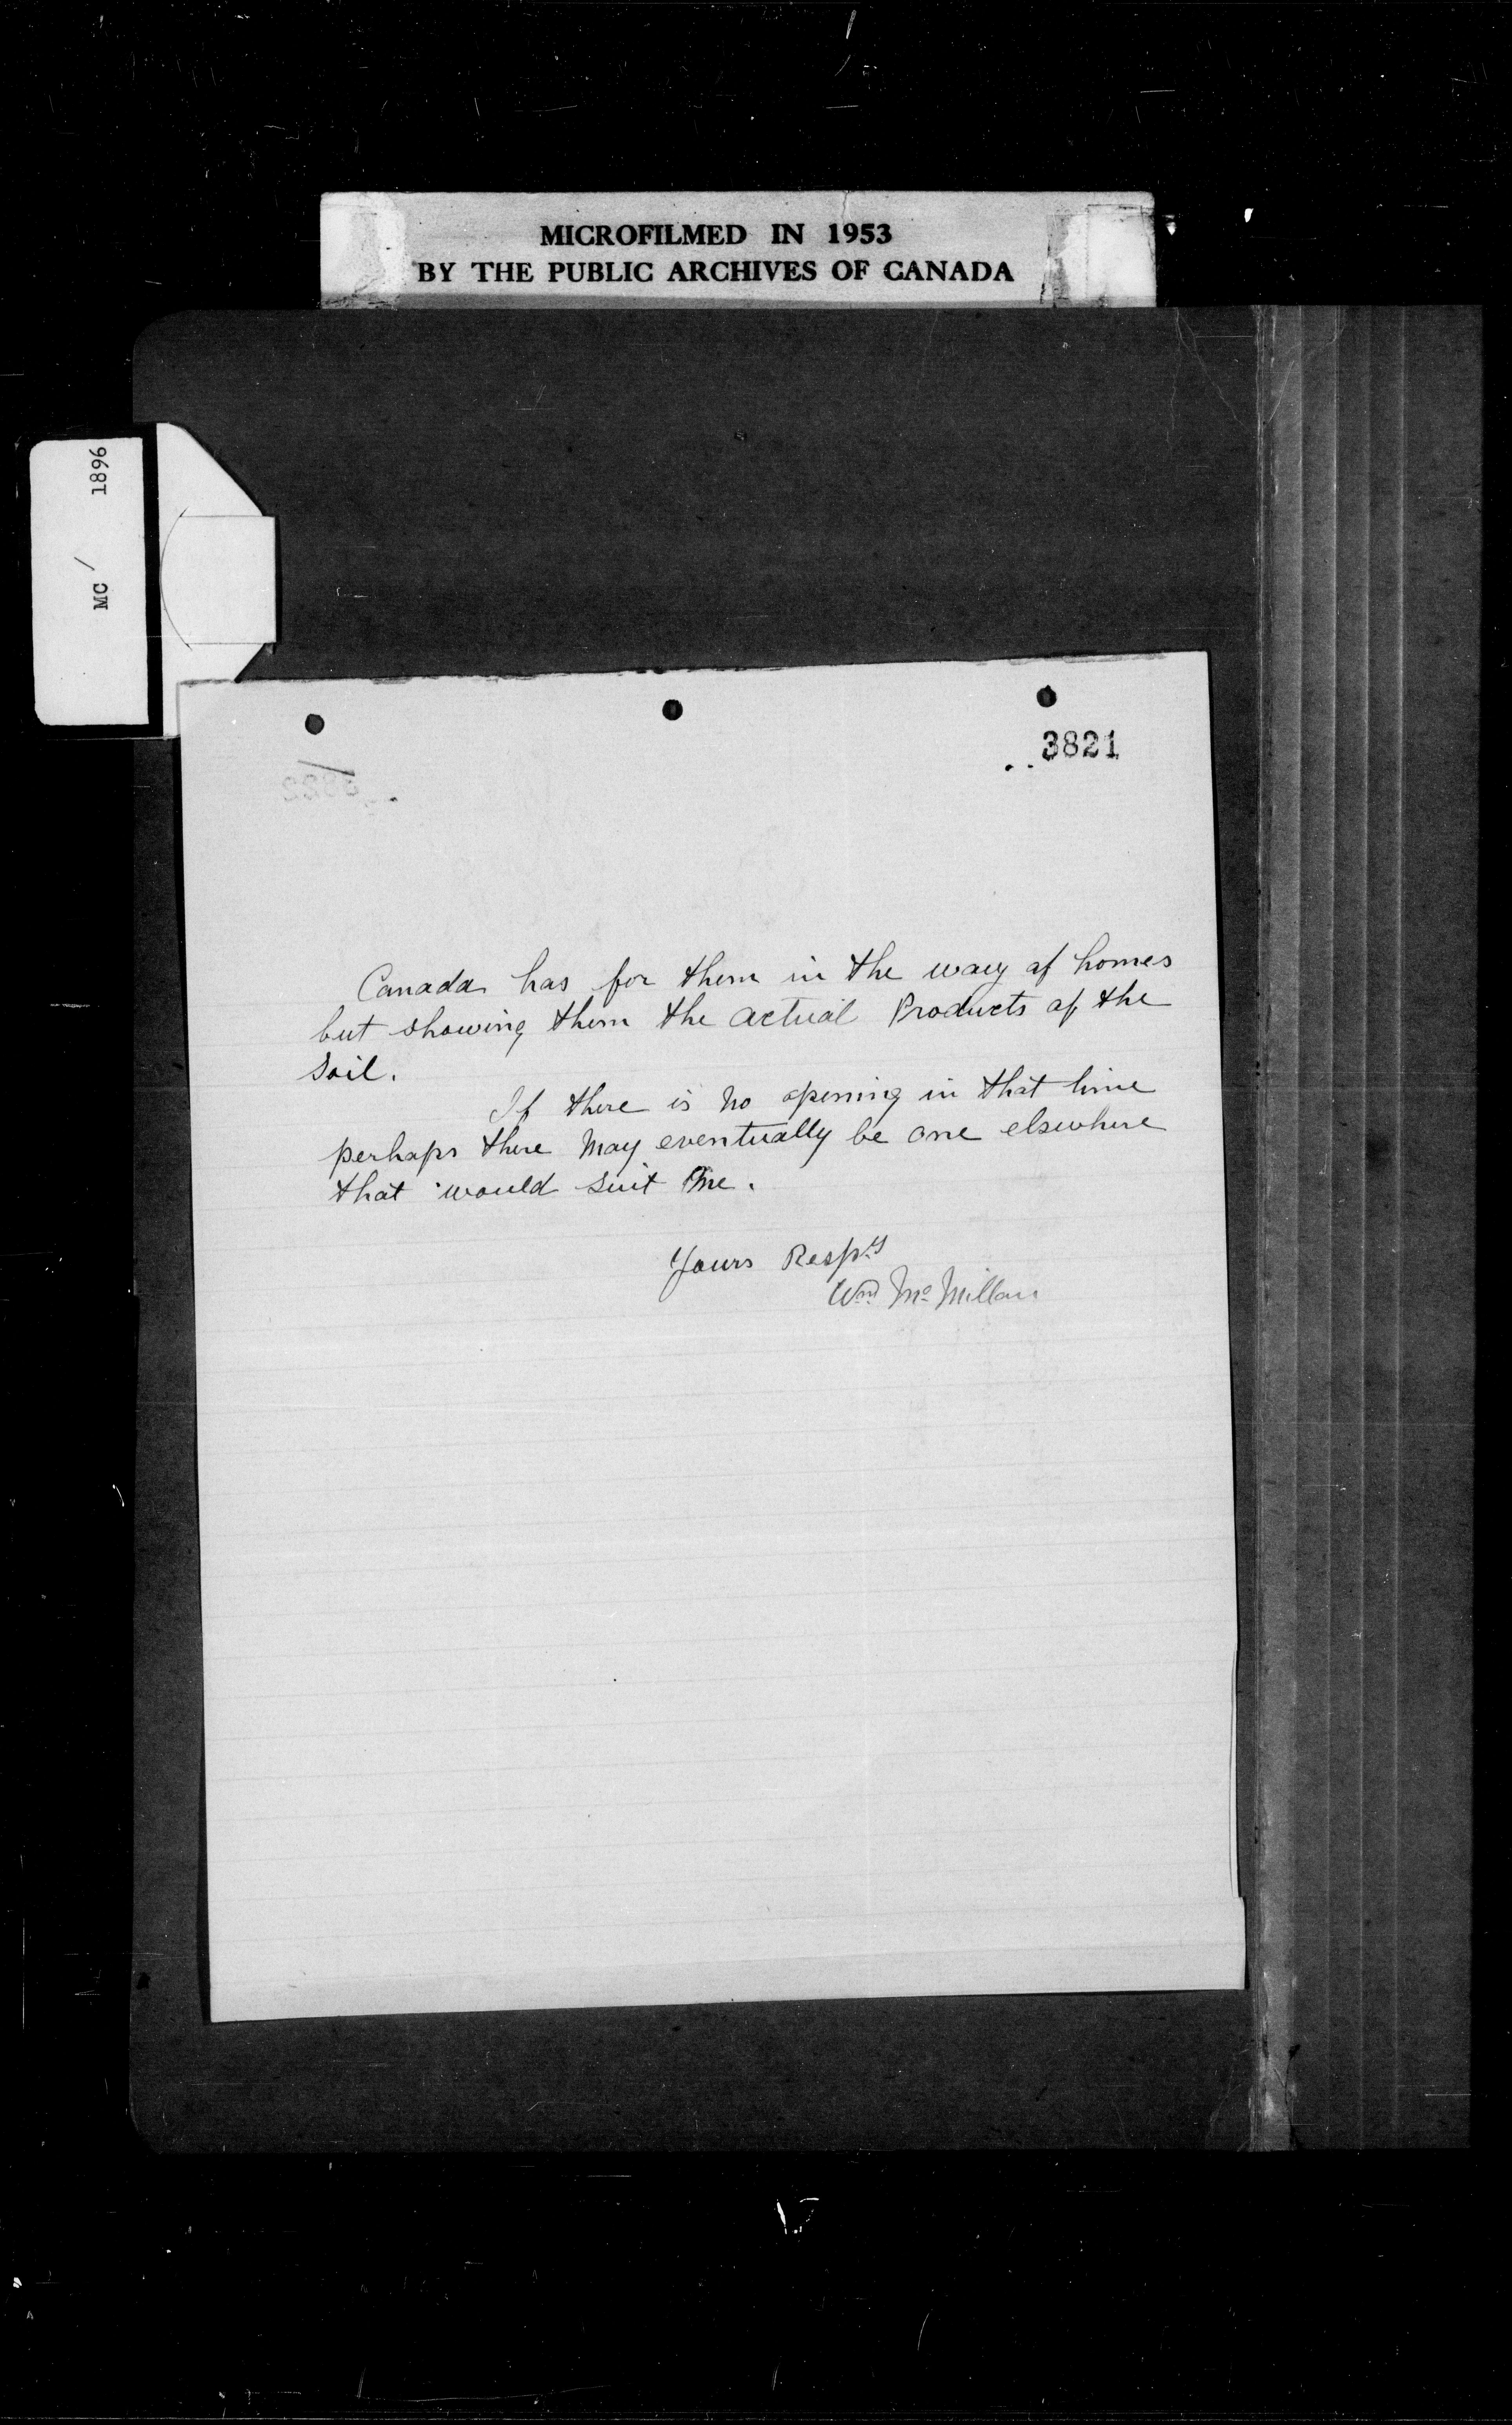 MICROFILMED IN 1953
BY THE PUBLIC ARCHIVES OF CANADA
MC / 1896
3821
Canada has for them in the way of homes
but showing them the actual Products of the
Soil.
If there is no opening in that line
perhaps there may eventually be one elsewhere
that would suit me.
Yours Resply
Wm McMillan